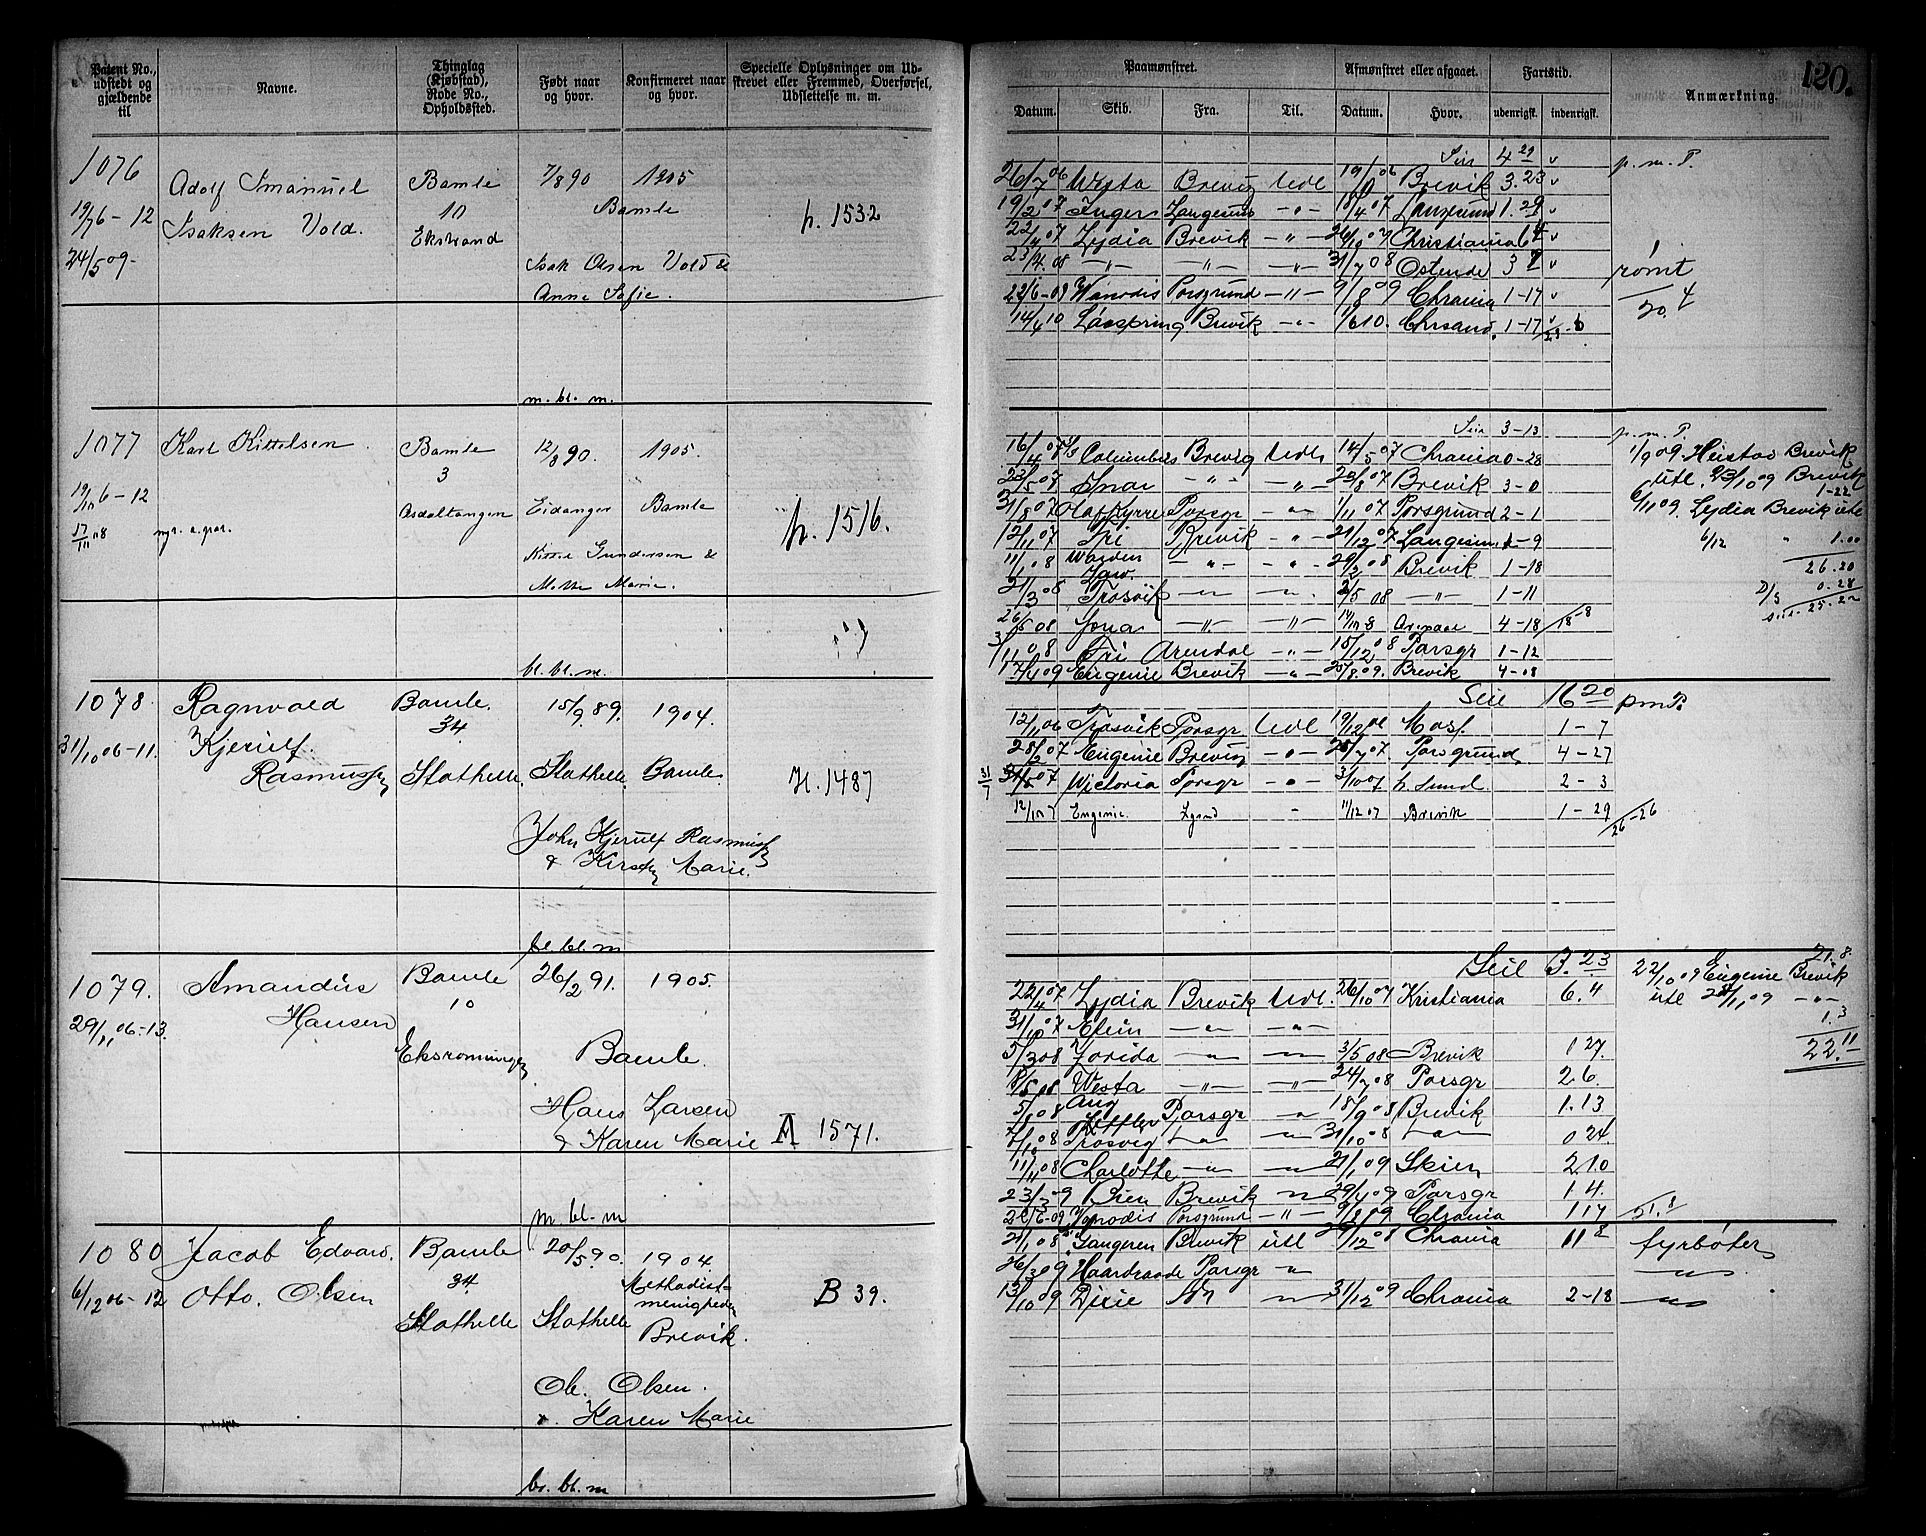 120.
Patent No., udstedt og gjældende til
Navne.
Thinglag (Kjøbstad), Rode No., Opholdssted.
Født naar og hvor.
Konfirmeret naar og hvor.
Specielle Oplysninger om Udskrevet eller Fremmed, Overførsel, Udslettelse m. m.
Paamønstret.
Afmønstret eller afgaaet.
Fartstid.
Anmærkning.
Datum. Skib. Fra. Til. Datum. Hvor. udenrigsk. indenrigsk.
1076
Adolf Imanuel
Isaksen Vold.
19/7 6 - 12
24/5 09
Bamle
10
Ekstrand
7/8 90 1905
Bamle
Isak Olsen Vold &
Anne Sofie.
h. 1532
m. bl. m.
Seil 4 29 p. m. P.
26/7 06 Westa Brevig Udl 19/ 06 Brevik 3.23
19/2 07 Inger Langesund -"- 18/4 07 Langesund 1.29
22/4 07 Lydia Brevik -"- 26/10 07 Christiania 6 4
23/4 08 -"- -"- -"- 31/7 08 Ostende 3 7 rømt
22/6-09 Vanadis Porsgrund -"- 9/8 09 Chrania 1-17
14/4 10 Lövspring Brevik -"- 1/6 10. Chrsand. 1-17
20.4
1077
Karl Kittelsen
19/10 6 - 12
17/11 08
Bamle
3
Asdaltangen
12/8 90. 1905.
Eidanger Bamle
Gundersen &
Marie.
h. 1516.
bl. bl. m.
Seil 3-13 p. m. P.
16/4 07 Columbus Brevig Udl 14/5 07 Chrania 0-28
23/5 07 Snar -"- -"- 23/8 07 Brevik 3-0
31/8 07 Hafkyrre Porsgr -"- 1/11 07 Porsgrund 2-1
12/11 07 Fri Brevik -"- 21/12 07 Langesund 1-9
11/1 08 Warden Law. -"- -"- 29/2 08 Brevik 1-18
21/3 08 Trosvik -"- -"- 2/5 08 -"- 1-11
26/5 08 Jona -"- -"- 14/10 8 4-18
3/11 08 Fri Arendal -"- 15/12 08 Porsgr 1-12
17/4 09 Eugenie Brevik -"- 25/8 09. Brevik 4-08
1/9 09 Heistad Brevik
utl. 23/10 09 Brevik
1-22
6/11 09. Lydia Brevik utl
6/12 " 1.00
26.20
D/S 0.28
Seil. 25.22
1078
Ragnvald
Kjerulf
Rasmussen
31/10 06-11.
Bamle.
34
Stathelle.
15/9 89. 1904.
Stathelle. Bamle
John Kjerulf Rasmussen
& Kirsten Marie.
H. 1487
bl. bl. m
Seil 16 20 pm P.
12/11 06 Trosvik Porsgr Udl 19/12 06 Moss. 1-7
28/2 07 Eugenie Brevig -"- 25/7 07 Porsgrund 4-27
31/7 Victoria Porsgr -"- 3/10 07 h. Sund. 2-3
12/10 7 Eugenie. Lgsnd - 11/12 07 Brevik 1-29
26-26
1079.
Amandus
Hansen
29/11 06-13.
Bamle
10
26/2 91. 1905.
Bamle.
Hans Larsen
& Karen Marie
A 1571.
m. bl. m
Seil 3. 23
22/4 07 Lydia Brevik Udl. 26/10 07 Kristiania 6.4
31/10 07 -"- -"-
5/3 08 Zorida -"- -"- 3/5 08 Brevik 1 27.
8/5 08 Westa -"- -"- 24/7 08 Porsgr 2 6.
5/8 08 Aug Porsgr -"- 18/9 08 Brevik 1.13
7/10 08 Trosvig -"- -"- 31/10 08 -"- 0 24.
11/11 08 Charlotte -"- -"- 21/1 09 Skien 2 10
23/3 09 Brevik -"- 29/4 09 Porsgr 1 4.
22/6-09 Vanadis Porsgrund -"- 9/8 09 Chrania 1 17
21.8
22/10 09 Eugenie Brevik
utl 24/11 09 -"-
1.3
22. 11
1080
Jacob Edvard.
Otto. Olsen
6/12 06-12
Bamle
34
Stathelle
20/5 90. 1904.
Methodist-
menigheden
Stathelle Brevik.
Ol. Olsen.
Karen Marie
B 39.
bl. bl. m
21/1 08 Gangeren Brevik utl 29/12 08 Chrania 11 8 fyrbøter
26/3 09 Haardraade Porsgr -"- -"-
13/10 09 Dixie -"- 31/12 09 Chrania 2-18 -"-